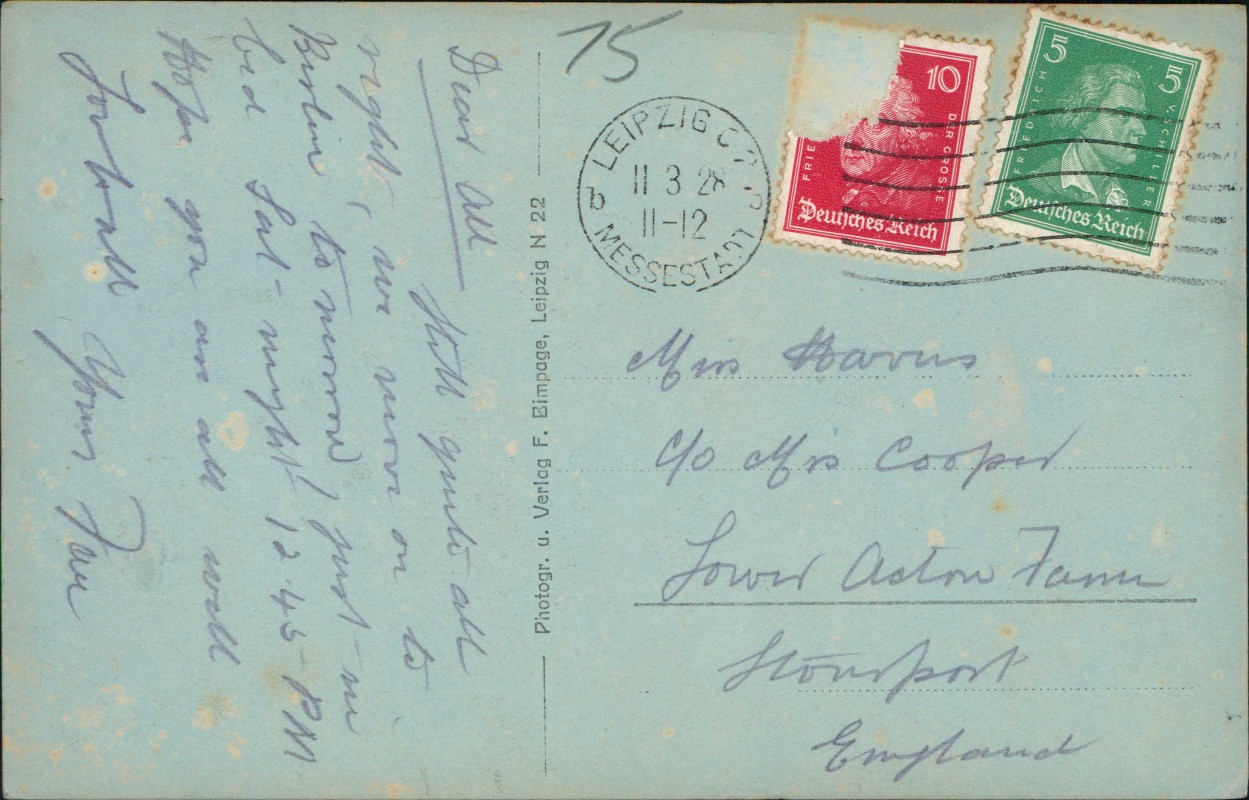 Dear All
Still quite all
right, we move on to
Berlin to morrow just in
bed Sat-night 12.45-PM
Hope you are all well
Love to all Yours
15
LEIPZIG
11 3 28
11-12
MESSESTADT
b
10
FRIE
DER GROSSE
Deutsches Reich
5 5
FRIEDRICH
V. SCHILLER
Deutsches Reich
Photogr. u. Verlag F. Eimpage, Leipzig N 22
Mrs
c/o Mrs Cooper
Lower Acton Farm
Stourport
England